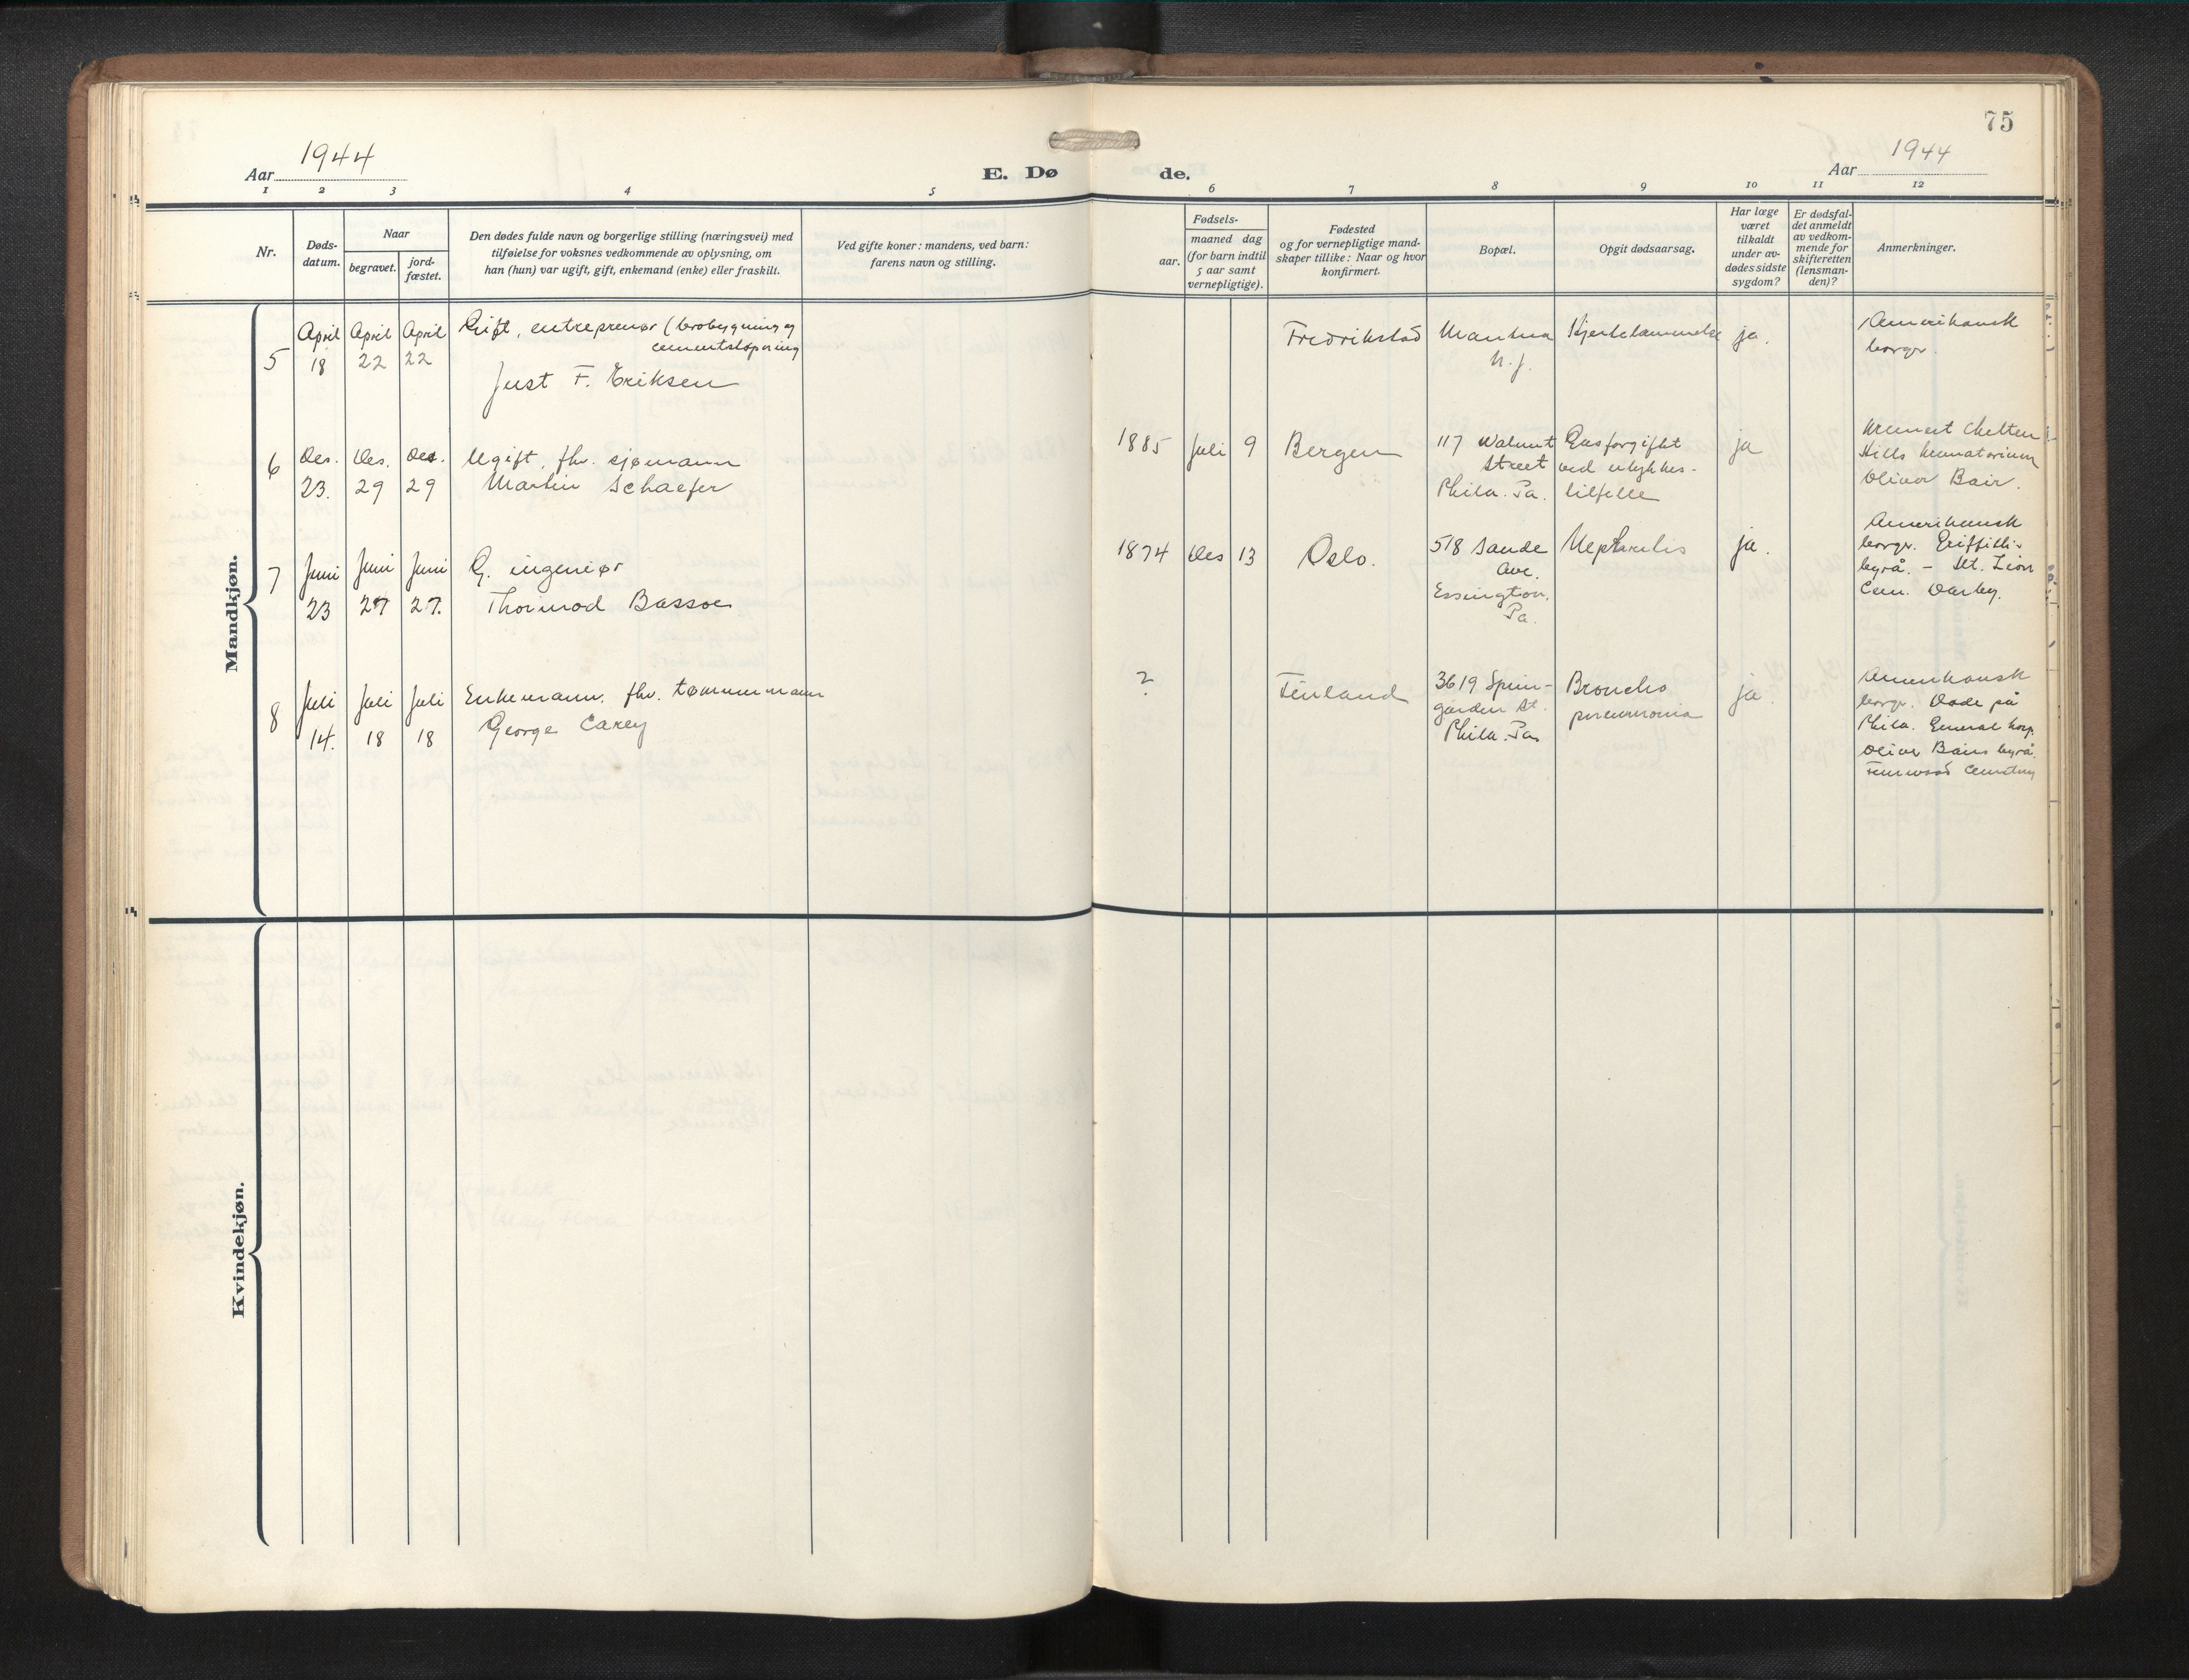 75
Aar 1944
E. Dø de.
Aar 1944
1 2 3 4 5 6 7 8 9 10 11 12
Nr.
Døds-
datum.
Naar
begravet.
jord-
fæstet.
Den dødes fulde navn og borgerlige stilling (næringsvei) med
tilføielse for voksnes vedkommende av oplysning, om
han (hun) var ugift, gift, enkemand (enke) eller fraskilt.
Ved gifte koner: mandens, ved barn:
farens navn og stilling.
Fødsels-
aar.
maaned dag
(for barn indtil
5 aar samt
vernepligtige).
Fødested
og for vernepligtige mand-
skaper tillike: Naar og hvor
konfirmert.
Bopæl.
Opgit dødsaarsag.
Har læge
været
tilkaldt
under av-
dødes sidste
sygdom?
Er dødsfal-
det anmeldt
av vedkom-
mende for
skifteretten
(lensman-
den)?
Anmerkninger.
Mandkjøn.
5
April
18
April
22
April
22
Gift, entreprenør (brobygning og
cementstøpning
Just F. Eriksen
Fredrikstad
Mantua
N.J.
Hjertelammelse
ja.
Amerikansk
borger.
6
Des.
23.
Des.
29
Des.
29
Ugift, fhv. sjømann
Martin Schaefer
1885 Juli 9
Bergen
117 Walnut
Street
Phila. Pa.
Gasforgiftet
ved ulykkes-
tilfelle
ja
Kremert Chelten
Hills krematorium
Oliver Bair.
7
Juni
23
Juni
27
Juni
27.
G. ingeniør
Thormod Bassoe
1874 Des 13
Oslo.
518 Sande
Ave.
Essington,
Pa.
Nephritis
ja.
Amerikansk
borger. Griffith's
byrå. - Mt. Zion
Cem. Darby.
8
Juli
14.
Juli
18
Juli
18
Enkemann, fhv. tømmermann
George Carey
?
Finland
3619 Sprin-
garden St.
Phila. Pa.
Broncho
pneumonia
ja.
Amerikansk
borger. Døde på
Phila. General hosp.
Oliver Bairs byrå.
Fernwood Cemetery
Kvindekjøn.